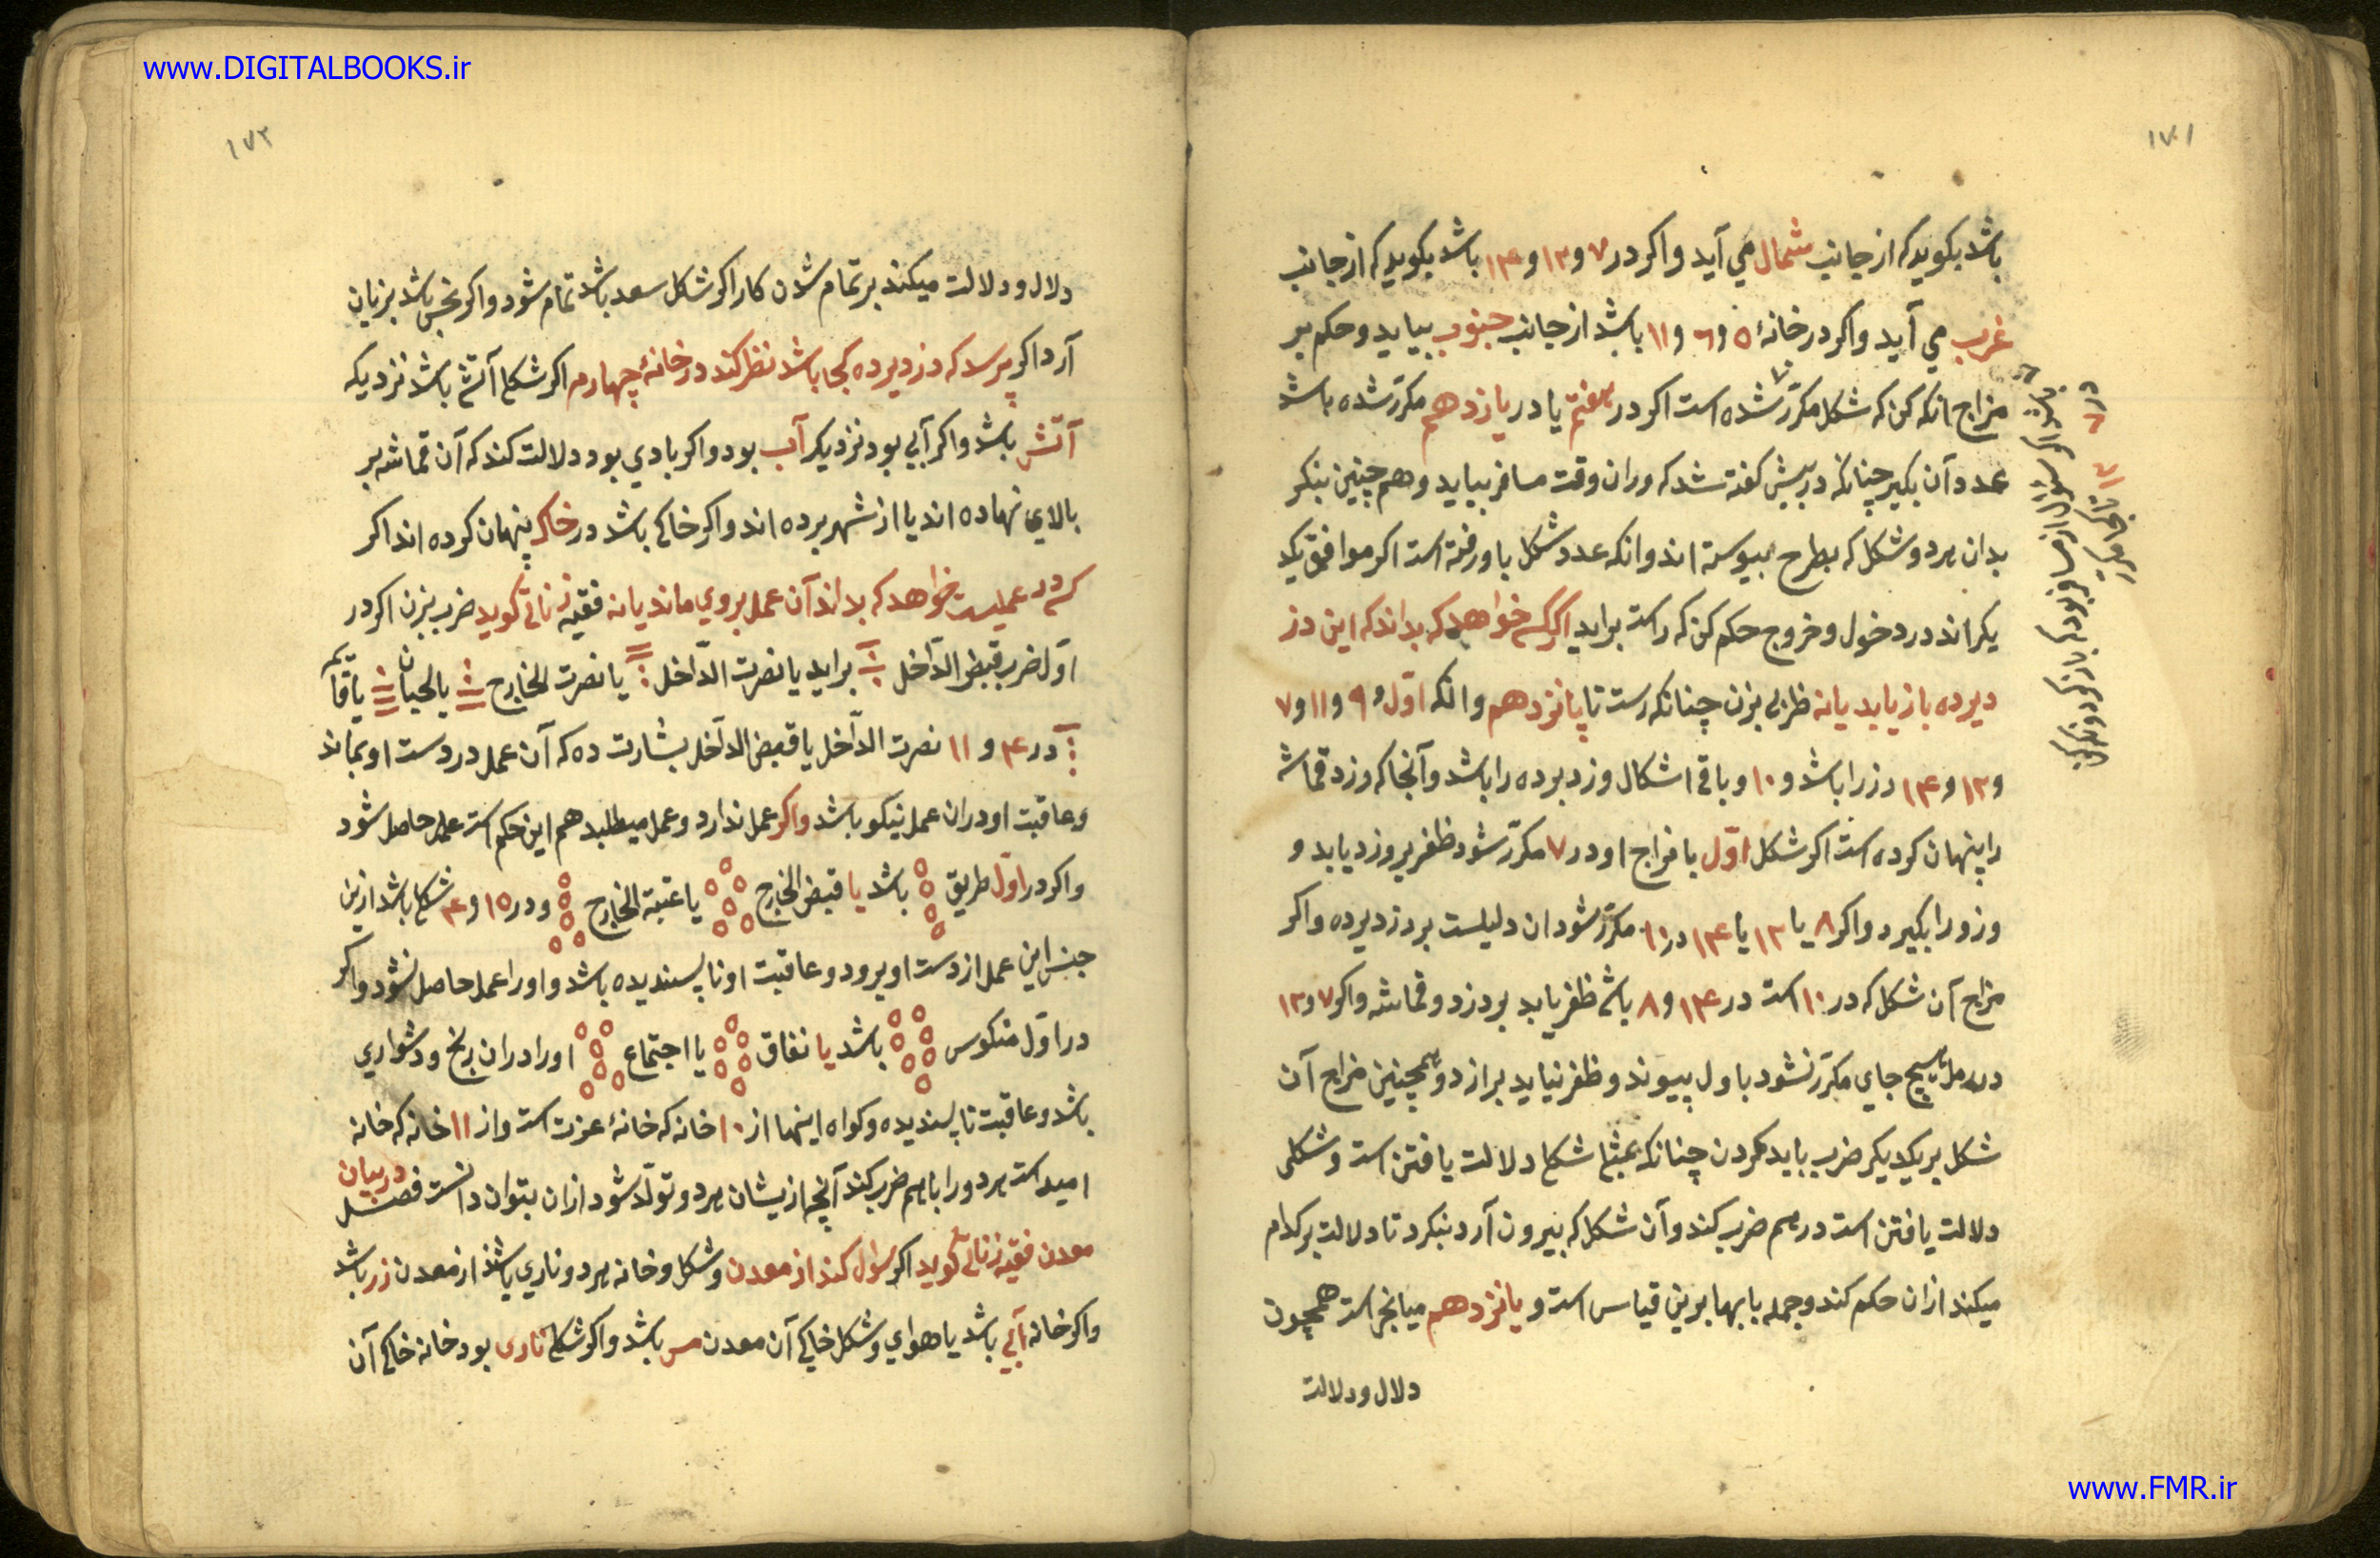 www.DIGITALBOOKS.ir
۱۷۱
باشد بکوید که از جانب شمال می آید و اکر در ۷ و ۱۳ و ۱۴ باشد بکوید که از جانب
غرب می آید و اکر در خانهٔ ۵ و ۶ و ۱۱ باشد از جانب جنوب بیاید و حکم بر
مزاج انکه کن که شکل مکرّر شده است اکر در هفتم یا در یازدهم مکرّر شده باشد
عدد آن بکیر چنانکه در پیش کفته شد که در ان وقت مسافر بیاید و هم چنین بنکر
بدان هر دو شکل که بطرح پیوسته اند و انکه عدد شکل باور فته است اکر موافق یکد
یکر اند در دخول و خروج حکم کن که راست براید اکر کسی خواهد که بداند که این دز
دبرده باز یابد یا نه ظربی بزن چنانکه رست تا پانزدهم و انکه اوّل و ۹ و ۱۱ و ۷
و ۱۳ و ۱۴ دزرا باشد و ۱۰ و باقی اشکال وزد برده را باشد و آنجا که دزد قماشه
را پنهان کرده است اکر شکل اوّل با مزاج او در ۷ مکرّر شود ظفر بر وزد یابد و
وزورا بکیرد و اکر ۸ یا ۱۳ یا ۱۴ در ۱۰ مکرّر شود ان دلیلست بر دزدبرده و اکر
مزاج آن شکل که در ۱۰ است در ۱۴ و ۸ باشد ظفر یابد بر دزد و قماشه و اکر ۷ و ۱۳
در رمل بهیچ جای مکرّر نشود باول پیوند و ظفر نیابد بر ان دزد و همچنین مزاج آن
شکل بر یکدیکر ضرب باید کردن چنانکه شکل دلالت یافتن است و شکلی
دلالت یافتن است در هم ضرب کند و آن شکل که بیرون آرد بنکرد تا دلالت بر کدام
میکند از ان حکم کند و جمله بابها برین قیاس است و پانزدهم میانجی است همچون
دلال و دلالت
۱۷۲
دلال و دلالت میکند بر تمام شدن کار اکر شکل سعد باشد تمام شود و اکر نحس باشد بزیان
آرد اکر پرسد که دزدبرده کجا باشد نظر کند در خانهٔ چهارم اکر شکل آتشی باشد نزدیکه
آتش باشد و اکر آبی بود نزدیکر آب بود و اکر بادی بود دلالت کند که آن قماشه بر
بالای نهاده اند یا از شهر برده اند و اکر خاکی باشد در خاک پنهان کرده اند اکر
کسی در عملیست خواهد که بداند آن عمل بروی ماند یا نه فقیه زناتی کوید ضرب بزن اکر در
اوّل ضرب قبض الدّاخل براید یا نصرت الدّاخل یا نصرت الخارج یا لحیان یا قایم
در ۴ و ۱۱ نصرت الدّاخل یا قبض الدّاخل بشارت ده که آن عمل در دست او بماند
و عاقبت او در ان عمل نیکو باشد و اکر عمل ندارد و عمل میطلبد هم این حکم است عمل حاصل شود
و اکر در اوّل طریق باشد یا قبض الخارج یا عتبة الخارج و در ۱۵ و ۴ شکل باشد ازین
جنس این عمل از دست او برود و عاقبت او ناپسندیده باشد و او را عمل حاصل نشود و اکر
در اوّل منکوس باشد یا نفاق یا اجتماع او را در ان رنج و دشواری
باشد و عاقبت ناپسندیده و کواه اینها از ۱۰ خانه که خانهٔ عزت است و از ۱۱ خانه که خانه
امید است هر دو را با هم ضرب کند آنچه از یشان هر دو تولّد شود از ان بتوان دانست فصل در بیان
معدن فقیه زناتی کوید اکر سؤل کند از معدن و شکل و خانه هر دو ناری باشد از معدن زر باشد
و اکر خانه آبی باشد یا هوای و شکل خاکی آن معدن مس باشد و اکر شکل ناری بود خانه خاکی آن
www.FMR.ir